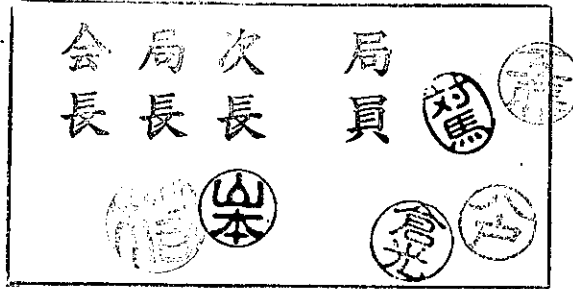 会長
局長
次長
局員
対馬
山本
倉光